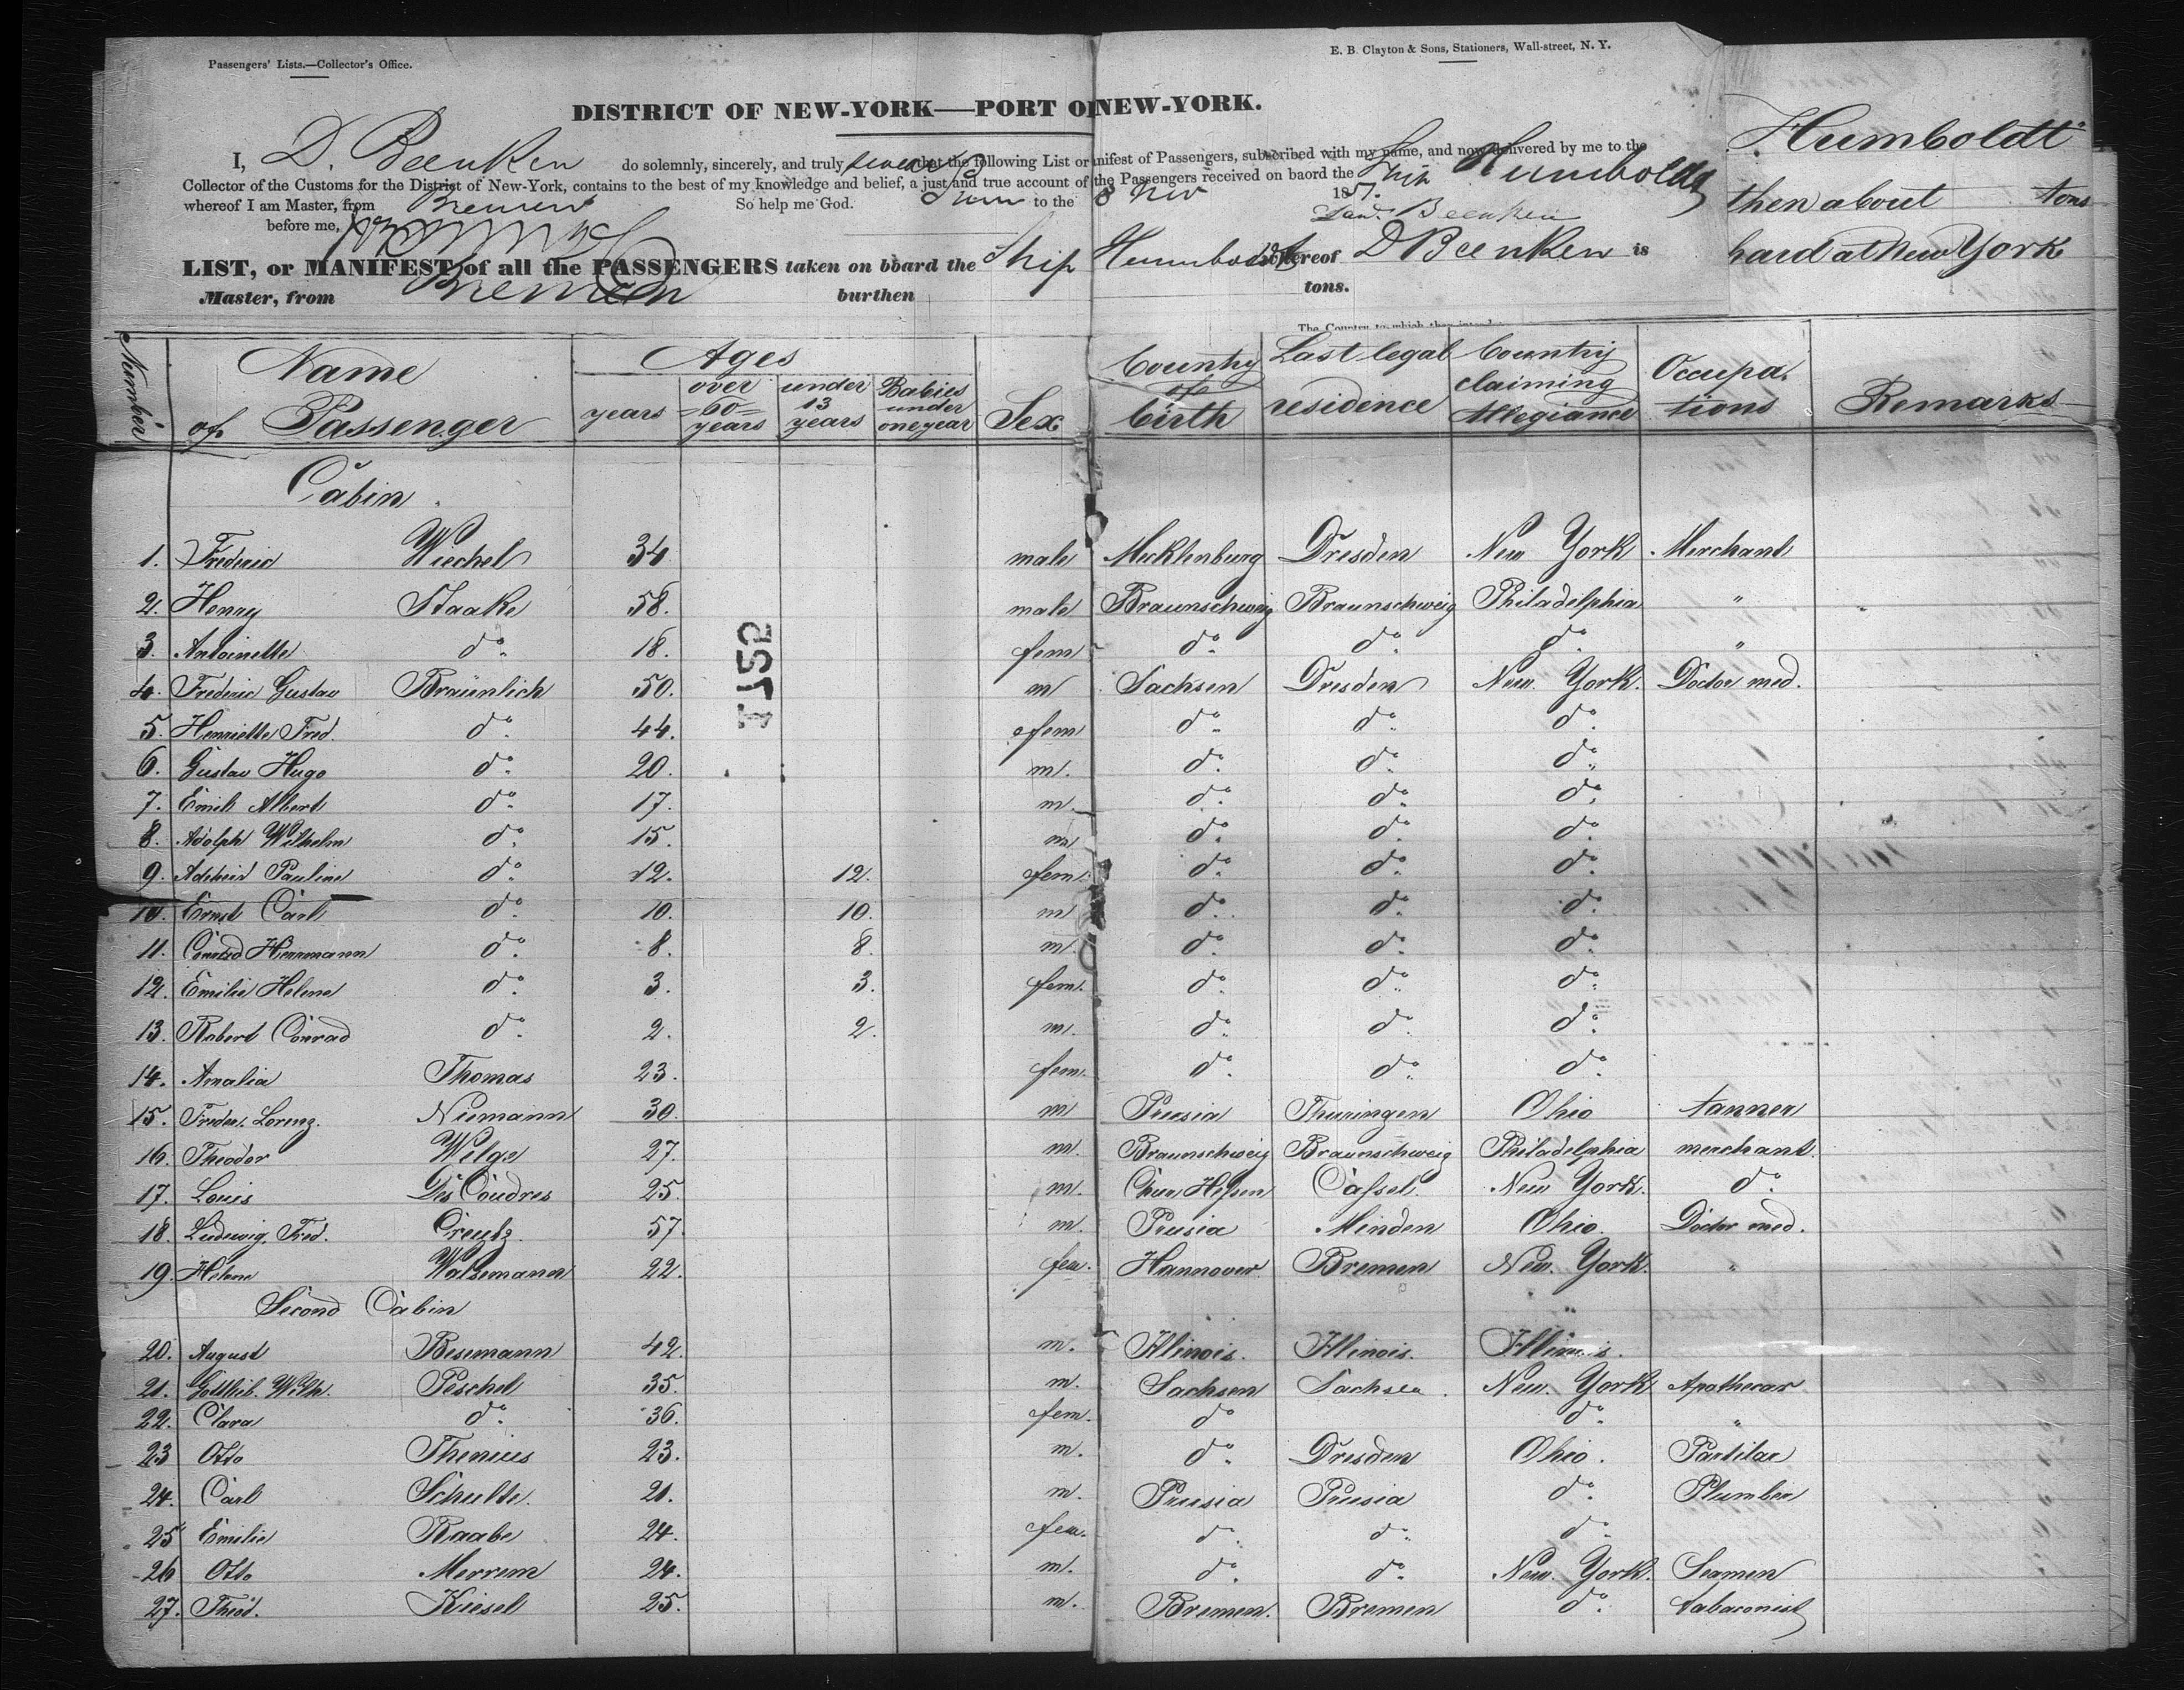 Passengers' Lists.—Collector's Office.
E. B. Clayton & Sons, Stationers, Wall-street, N. Y.
DISTRICT OF NEW-YORK—PORT O NEW-YORK.
I, D. Beenken do solemnly, sincerely, and truly swear that the following List or nifest of Passengers, subscribed with my name, and now delivered by me to the
Collector of the Customs for the District of New-York, contains to the best of my knowledge and belief, a just and true account of the Passengers received on baord the Ship Humboldt
whereof I am Master, from Bremen So help me God. Sworn to the 8 Nov 1851.
before me, Beenken
LIST, or MANIFEST of all the PASSENGERS taken on board the Ship Humboldt whereof D Beenken is
Master, from Bremen burthen tons.
Humboldt
then about tons
hard at New York
Number Name of Passenger Ages years over 60 years under 13 years Babies under one year Sex Country of birth Last legal residence Country claiming Allegiance Occupations Remarks
Cabin
1. Frederic Wiechel 34 male Mecklenburg Dresden New York Merchant
2. Henry Staake 58. male Braunschweig Braunschweig Philadelphia "
3. Antoinette do. 18. fem do. do. do. "
4. Frederic Gustav Bräunlich 50. m Sachsen Dresden New York. Doctor med.
5. Henriette Fred. do. 44. fem do. do. do.
6. Gustav Hugo do. 20. m. do. do. do.
7. Emil Albert do. 17. m. do. do. do.
8. Adolph Wilhelm do. 15. m do. do. do.
9. Adelheid Pauline do. 12. 12. fem. do. do. do.
10. Ernst Carl do. 10. 10. m do. do. do.
11. Conrad Herrmann do. 8. 8. m. do. do. do.
12. Emilie Helene do. 3. 3. fem. do. do. do.
13. Robert Conrad do. 2. 2. m. do. do. do.
14. Amalia Thomas 23. fem. do. do. do.
15. Freder. Lorenz. Niemann 30. m Prusia Thuringen Ohio tanner
16. Theodor Wilge 27. m. Braunschweig Braunschweig Philadelphia merchant.
17. Louis Des Coudres 25. m. Chur Hessen Cassel. New York. do.
18. Ludewig, Fred. Creutz. 57. m. Prusia Minden Ohio. Doctor med.
19. Helene Walsemann 22. fem. Hannover Bremen New York. "
Second Cabin
20. August Besemann 42. m. Illinois. Illinois. Illinois.
21. Gottlieb. Wilh. Peschel 35. m. Sachsen Sachsen. New York Apothecar
22. Clara do. 36. fem. do do. "
23 Otto Thenius 23. m. do. Dresden Ohio. Partilar
24. Carl Schulte. 21. m. Prusia Prusia do. Plumber
25 Emilie Raabe 24. fem. do. do. do.
26 Otto Merrem 24. m. do. do. New York. Seamen
27. Theod. Kiesel 25. m. Bremen. Bremen do. tabaconist
1152